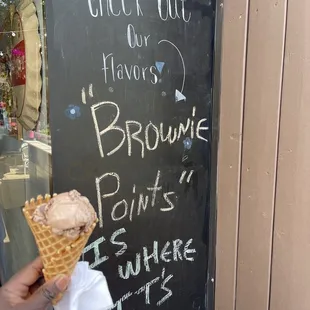 CHECK OUT
Our
Flavors
"BROWNIE
Points"
IS
WHERE
IT'S